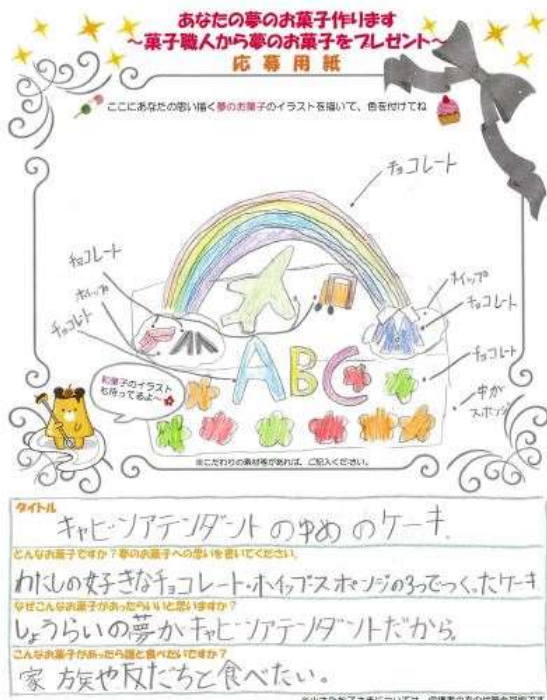 あなたの夢のお菓子作ります
～菓子職人から夢のお菓子をプレゼント～
応募用紙
ここにあなたの思い描く夢のお菓子のイラストを描いて、色を付けてね
チョコレート
チョコレート
ホイップ
チョコレート
ホイップ
チョコレート
ABC
チョコレート
中が
スポンジ
和菓子のイラスト
も待ってるよ～
※こだわりの素材等があれば、ご記入ください。
タイトル
キャビンアテンダントのゆめのケーキ
どんなお菓子ですか?夢のお菓子への思いを書いてください。
わたしの好きなチョコレート・ホイップスポンジの3つでつくったケーキ
なぜこんなお菓子があったらいいと思いますか?
しょうらいの夢がキャビンアテンダントだから。
こんなお菓子があったら誰と食べたいですか?
家族や友だちと食べたい。